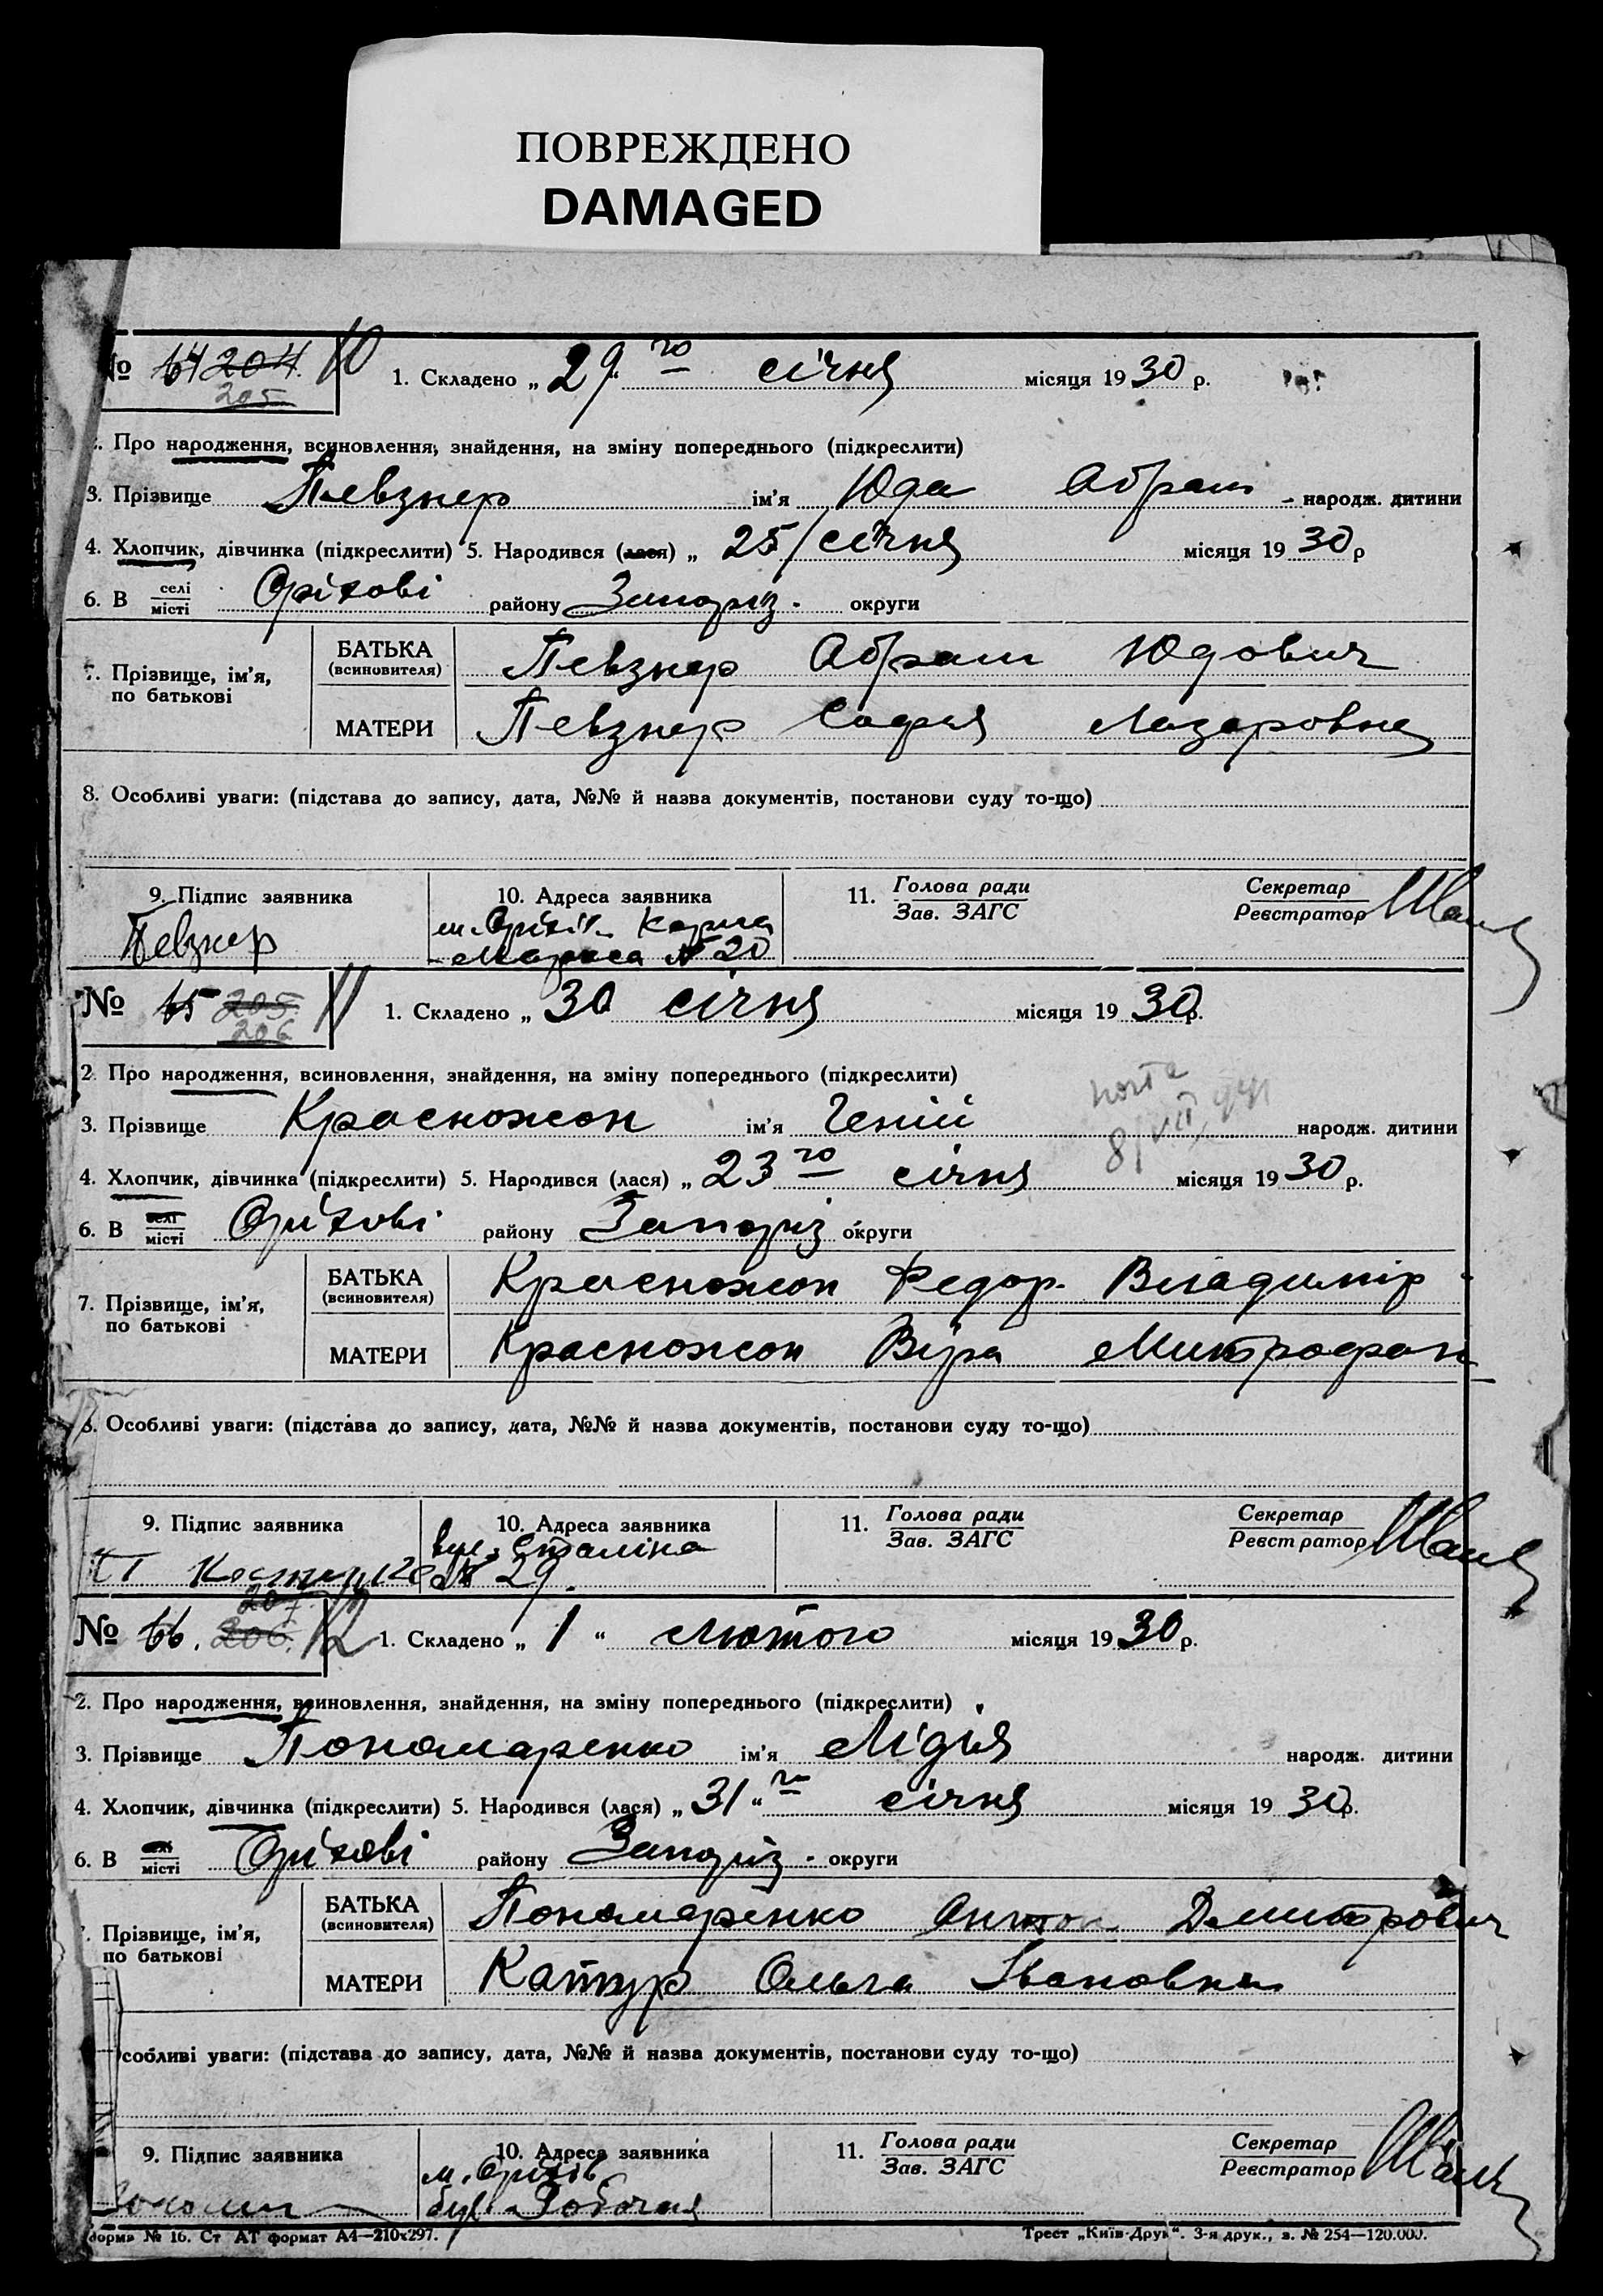 ПОВРЕЖДЕНО
DAMAGED
№ 64 204. 10
205
1. Складено „ 29 “ го січня місяця 19 30 р.
2. Про народження, всиновлення, знайдення, на зміну попереднього (підкреслити)
3. Прізвище Певзнер ім'я Юда Абрам - народж. дитини
4. Хлопчик, дівчинка (підкреслити) 5. Народився (лася) „ 25/ січня місяця 19 30 р
6. В селі/місті Оріхові району Запоріз. округи
7. Прізвище, ім'я, по батькові
БАТЬКА (всиновителя) Певзнер Абрам Юдович
МАТЕРИ Певзнер Софья Лазаровна
8. Особливі уваги: (підстава до запису, дата, №№ й назва документів, постанови суду то-що)
9. Підпис заявника 10. Адреса заявника 11. Голова ради/Зав. ЗАГС Секретар/Реєстратор
Певзнер м. Оріхів Карла
Маркса № 20
№ 65 205 11
206
1. Складено „ 30 січня місяця 19 30 р.
2. Про народження, всиновлення, знайдення, на зміну попереднього (підкреслити)
3. Прізвище Красножон ім'я Геній народж. дитини
4. Хлопчик, дівчинка (підкреслити) 5. Народився (лася) „ 23 го січня місяця 19 30 р.
6. В селі/місті Оріхові району Запоріз округи
7. Прізвище, ім'я, по батькові
БАТЬКА (всиновителя) Красножон Федор. Владимір.
МАТЕРИ Красножон Віра Митрофан
8. Особливі уваги: (підстава до запису, дата, №№ й назва документів, постанови суду то-що)
9. Підпис заявника 10. Адреса заявника 11. Голова ради/Зав. ЗАГС Секретар/Реєстратор
вул. Сталіна
№ 29.
207
№ 66. 206. 12
1. Складено „ 1 “ лютого місяця 19 30 р.
2. Про народження, всиновлення, знайдення, на зміну попереднього (підкреслити)
3. Прізвище Пономаренко ім'я Лідія народж. дитини
4. Хлопчик, дівчинка (підкреслити) 5. Народився (лася) „ 31 “ го січня місяця 19 30 р.
6. В селі/місті Оріхові району Запоріз. округи
Прізвище, ім'я, по батькові
БАТЬКА (всиновителя) Пономаренко Антон Дмитрович
МАТЕРИ Катпур Ольга Івановна
собливі уваги: (підстава до запису, дата, №№ й назва документів, постанови суду то-що)
9. Підпис заявника 10. Адреса заявника 11. Голова ради/Зав. ЗАГС Секретар/Реєстратор
м. Оріхів
вул. Робочая
форма № 16. Ст АТ формат А4—210х297. Трест „Київ-Друк“. 3-я друк., з. № 254—120.000.